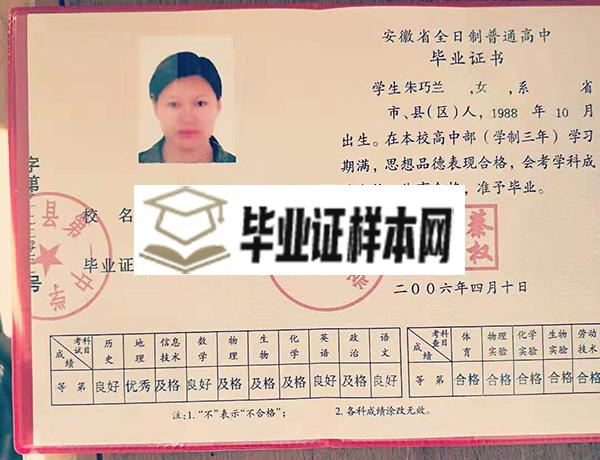 安徽省全日制普通高中
毕业证书
学生朱巧兰 ,女 ,系 省
市、县(区)人, 1988 年 10 月
出生。在本校高中部(学制三年)学习
期满，思想品德表现合格，会考学科成
准予毕业。
字第
号
校 名
毕业证
县第一中学
毕业证样本网
二〇〇六年四月十日
考试科目 历史 地理 信息技术 数学 物理 生物 化学 英语 政治 语文
成绩等第 良好 优秀 及格 良好 及格 及格 及格 良好 及格 良好
考查科目 体育 物理实验 化学实验 生物实验 劳动技术
成绩等第 合格 合格 合格 合格 合格
注:1. “不”表示“不合格”； 2. 各科成绩涂改无效。